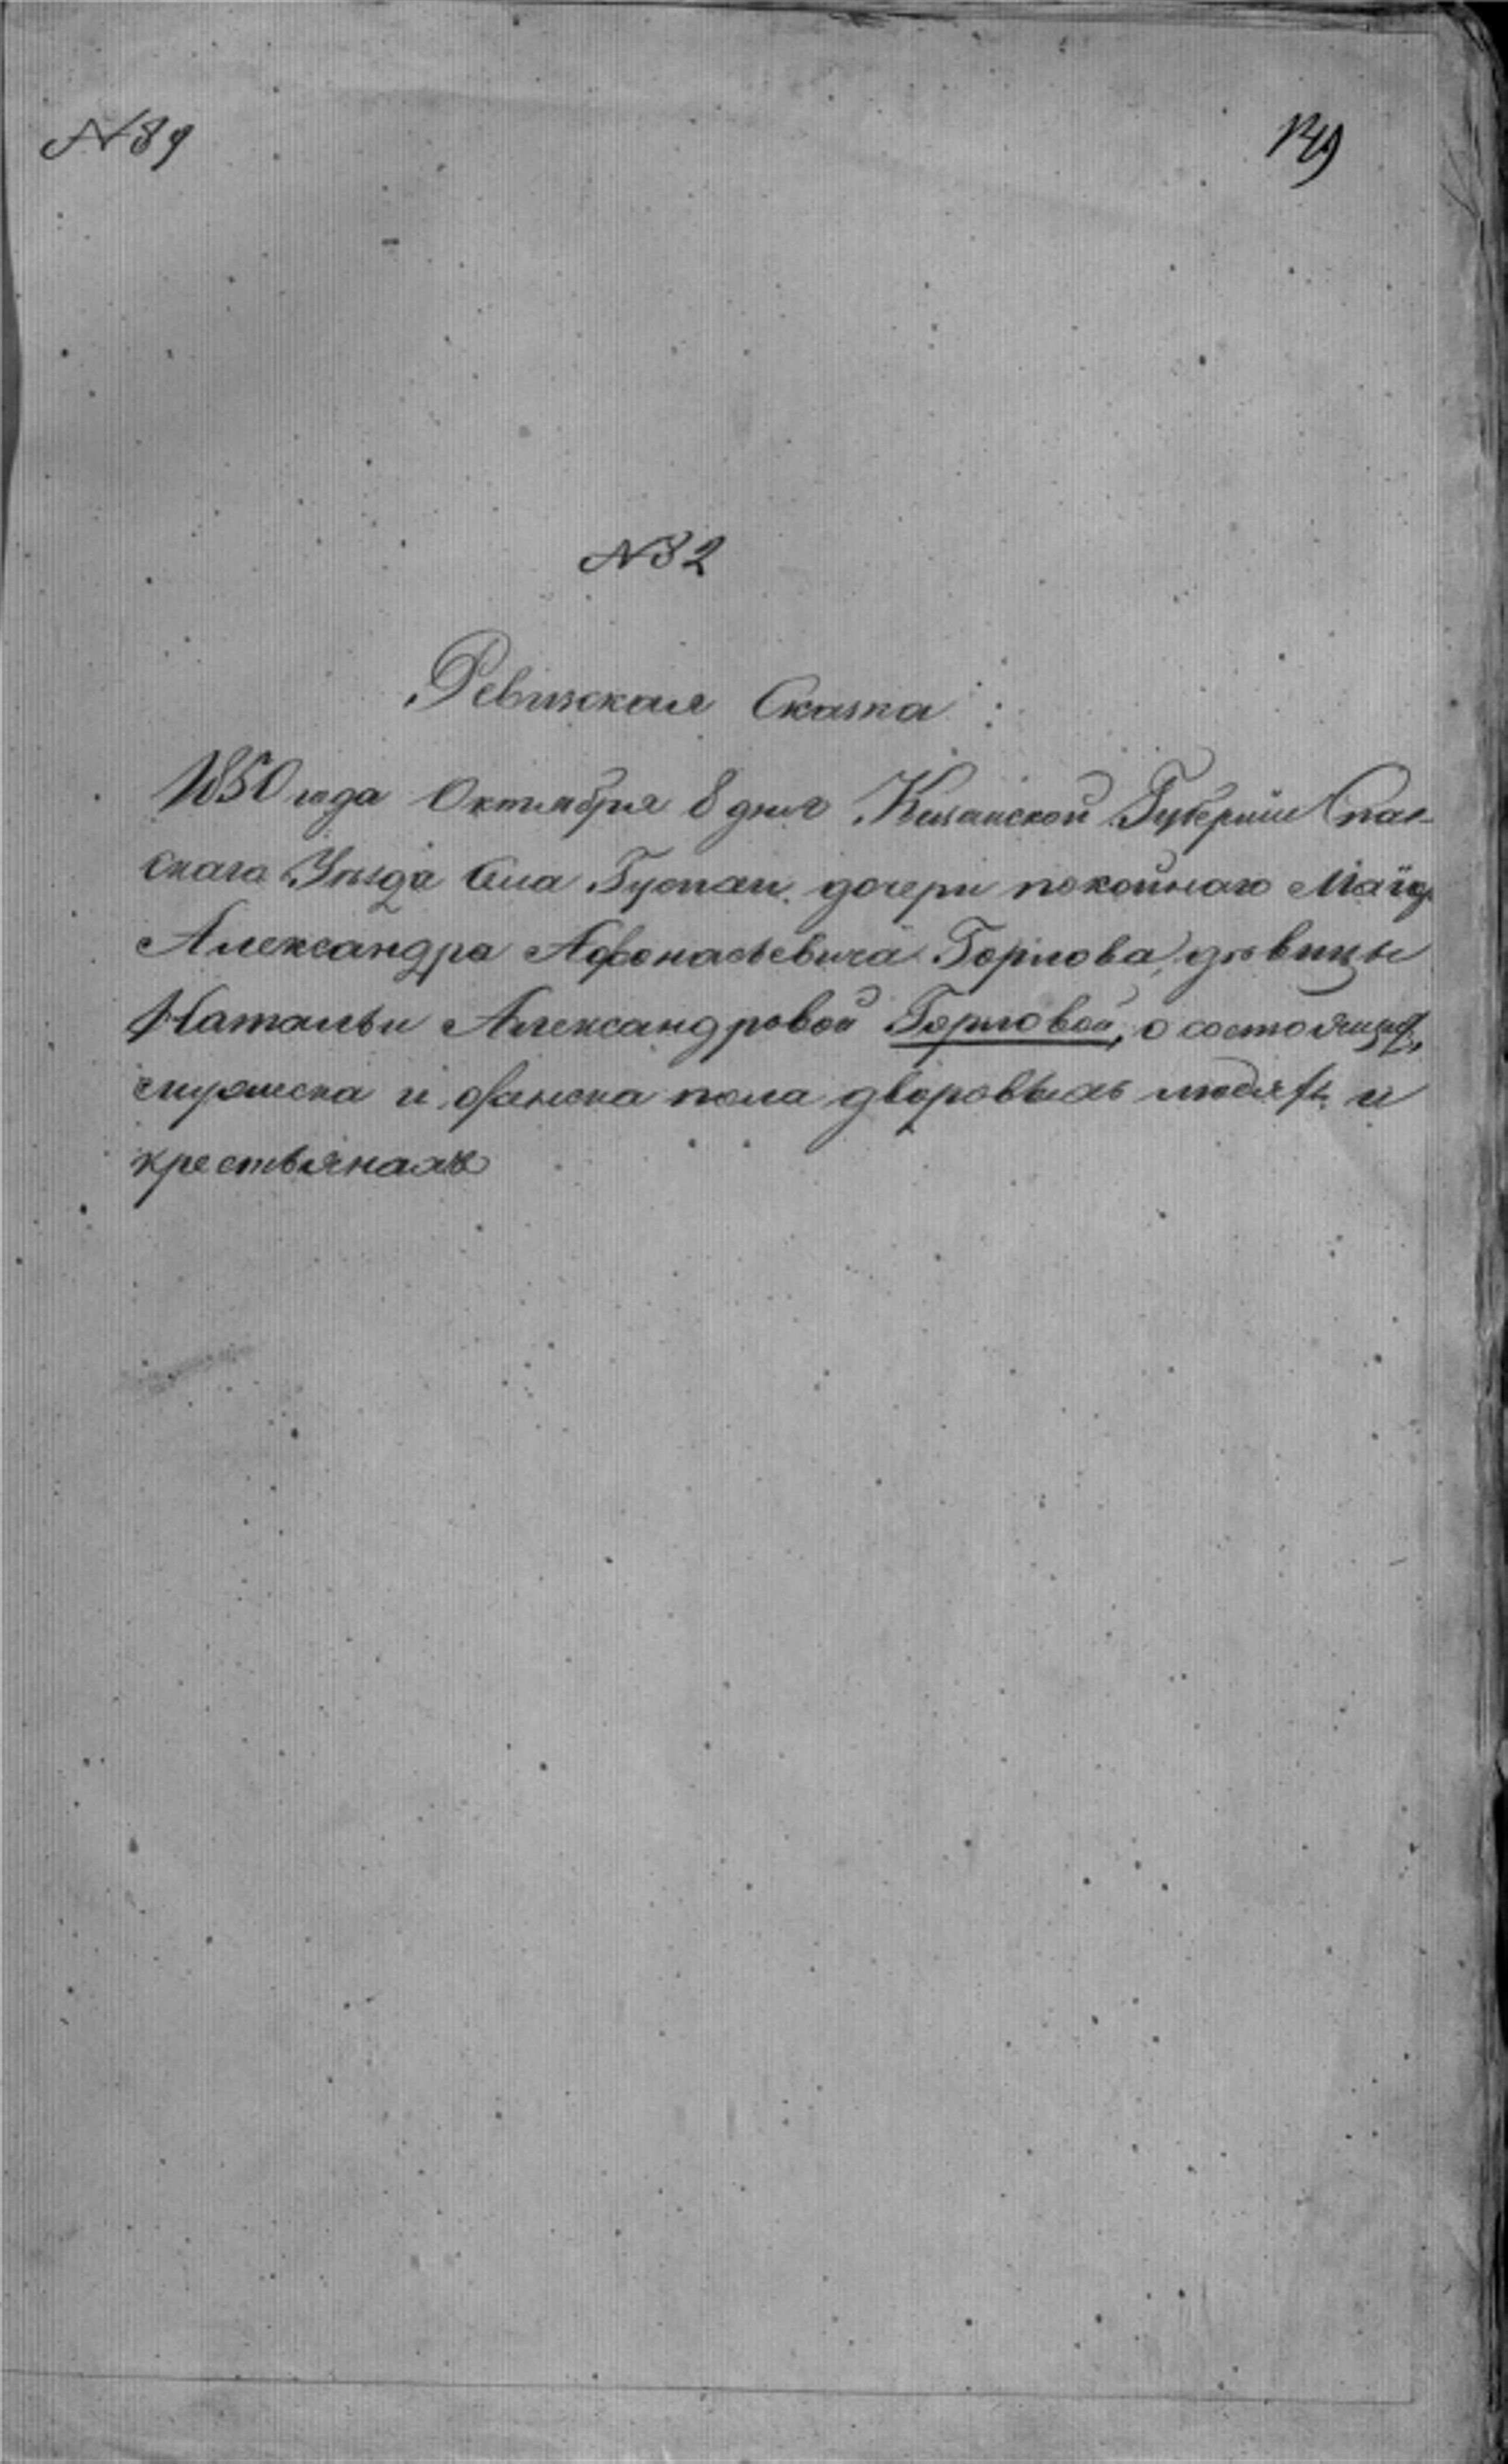 N 89
149
N 32
Ревизская Сказка:
1850 года Октября 8 дня Казанской Губернии Спас-
скаго Уѣзда Села дочери покойнаго Маіор.
Александра Афонасьевича Горлова, дѣвицы
Натальи Александровой Горловой, о состоящихъ
мужеска и женска пола дворовыхъ людяхъ и
крестьянахъ